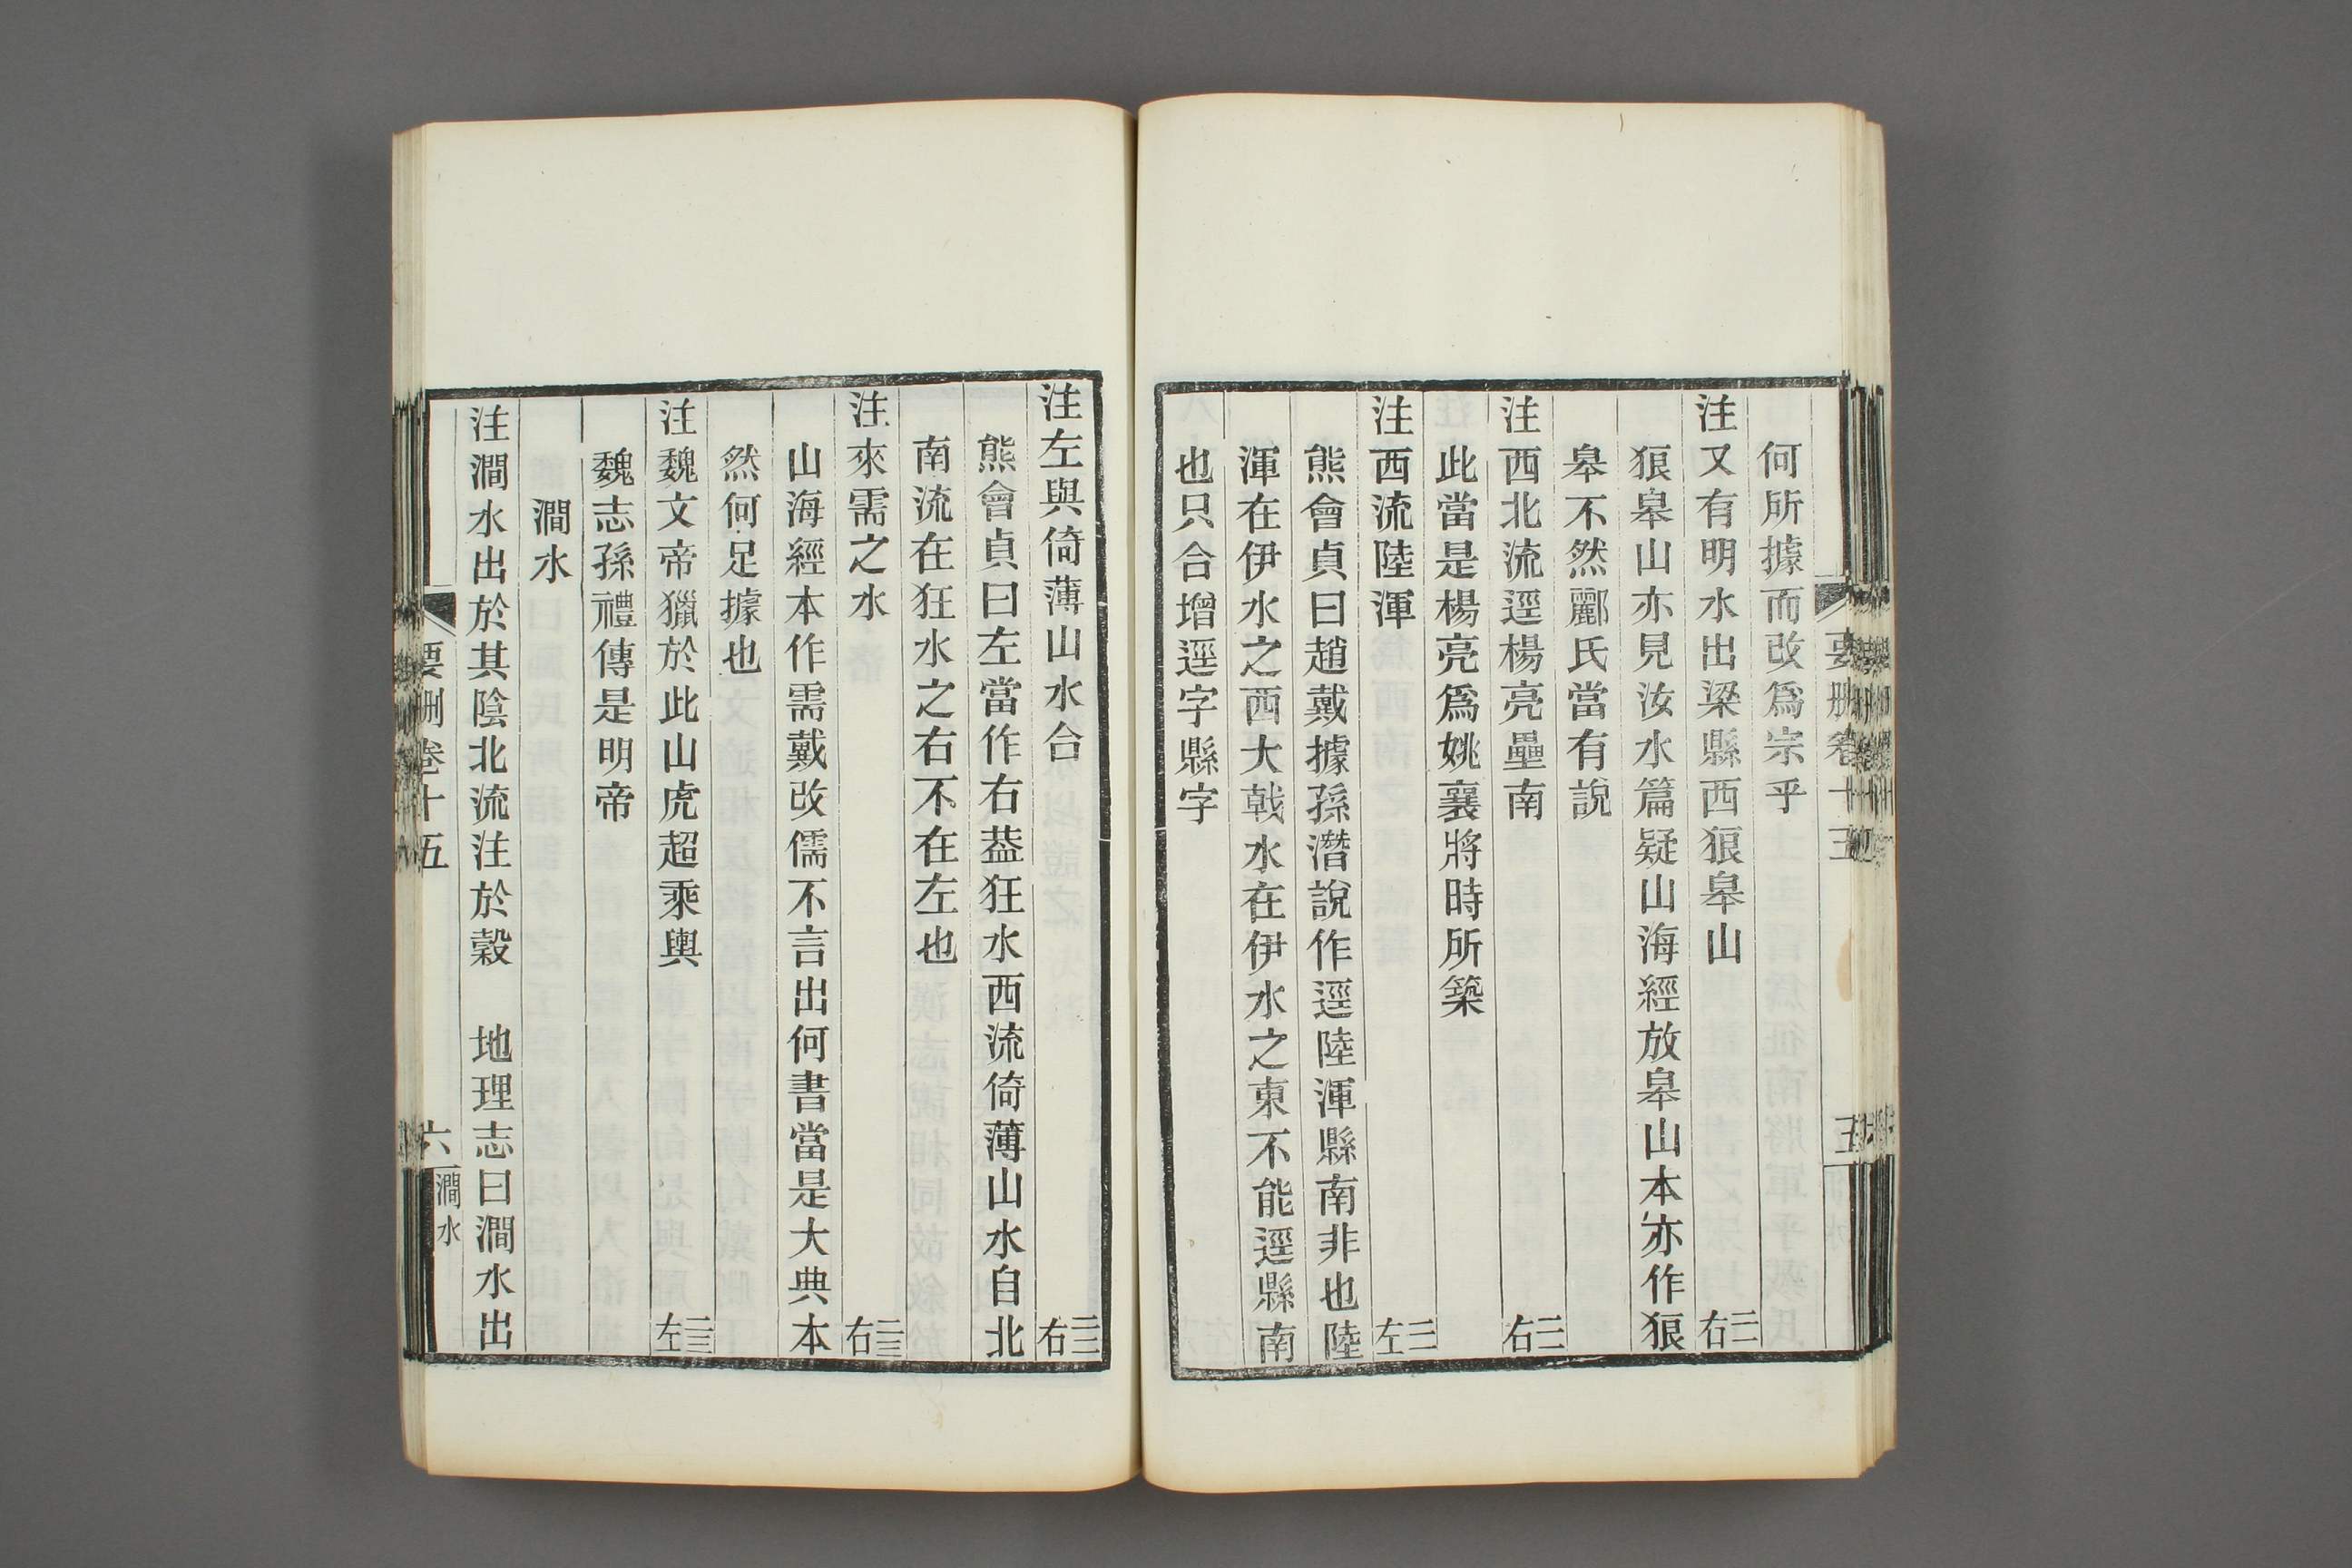 何所據而改爲宗乎
注又有明水出梁縣西狼皋山 二二右
狼皋山亦見汝水篇疑山海經放皋山本亦作狼
皋不然酈氏當有說
注西北流逕楊亮壘南 二二右
此當是楊亮爲姚襄將時所築
注西流陸渾 二二左
熊會貞曰趙戴據孫潛說作逕陸渾縣南非也陸
渾在伊水之西大戟水在伊水之東不能逕縣南
也只合增逕字縣字
注左與倚薄山水合 二三右
熊會貞曰左當作右葢狂水西流倚薄山水自北
南流在狂水之右不在左也
注來需之水 二三右
山海經本作需戴改儒不言出何書當是大典本
然何足據也
注魏文帝獵於此山虎超乘輿 二三左
魏志孫禮傳是明帝
澗水
注澗水出於其陰北流注於穀 地理志曰澗水出
要刪卷十五 六 澗水